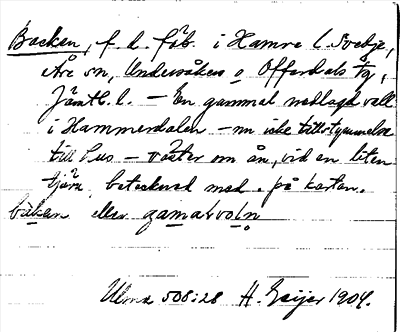 Backen, f. d. fäb. i Hamre l. Svedje,
Åre sn, Undersåkers o Offerdals tg,
Jämtl. l. – En gammal nedlagd vall
i Hammerdalen – nu icke
till hus – väster om ån, vid en liten
tjärn, betecknad med . på kartan.
båkan eller gamalvoln
Ulma 508:28 H. Geijer 1904.